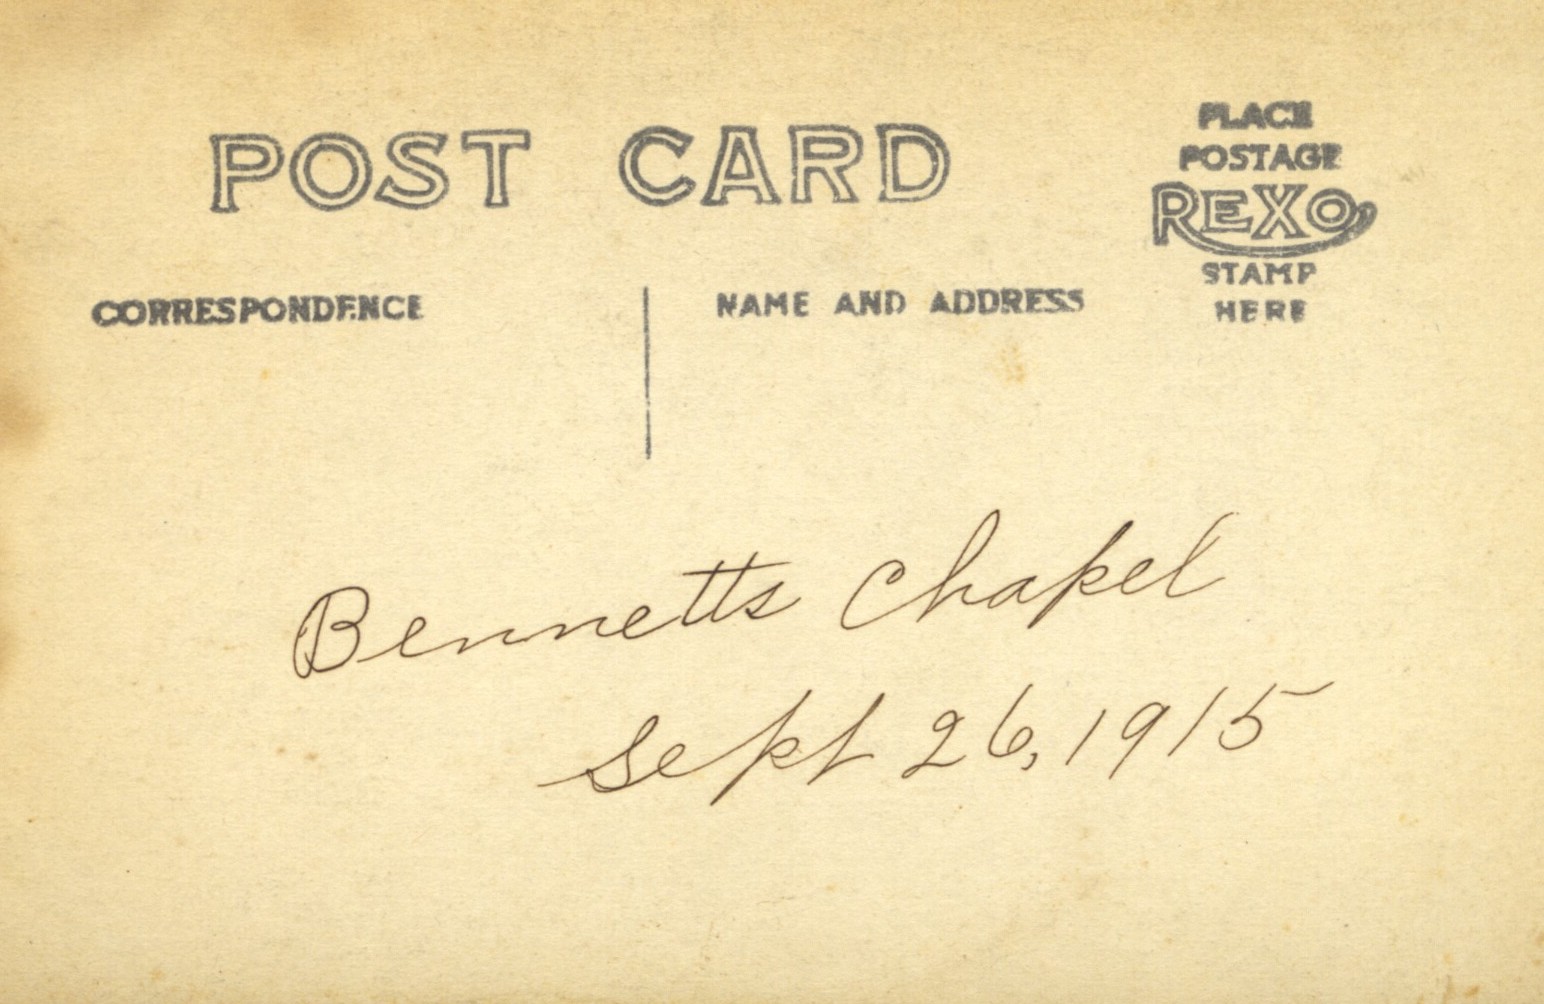 POST CARD
PLACE
POSTAGE
REXO
STAMP
HERE
CORRESPONDENCE
NAME AND ADDRESS
Bennetts Chapel
Sept 26, 1915